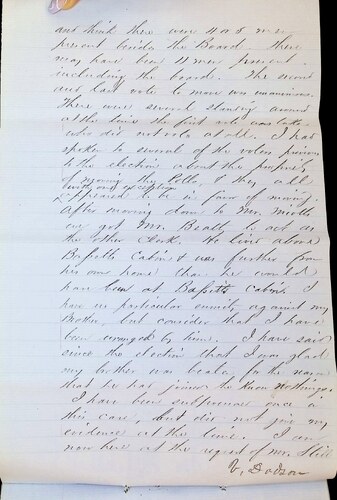 and think there were 7 or 8 men
present beside the Board. There
may have been 11 men present
including the board. The second
and last vote to move was unanimous.
There were several standing around
at the time the first vote was taken,
who did not vote at all. I had
spoken to several of the voters previous
to the election about the propriety
of moving the Polls, & they all
with one exception
appeared to be in favor of moving.
After moving down to Mr.
we got Mr. Beatty to act as
the other Clerk. He lives above
Bassetts Cabin & was further from
his own home than he would
have been at Bassetts Cabin. I
have no particular enmity against my
Brother, but consider that I have
been wronged by him. I have said
since the election that I was glad
my brother was beat, for the reason
that he has joined the Know nothings.
I have been subpoenaed once in
this case, but did not give my
evidence at the time. I am
now here at the request of Mr. Still
V. Dodson